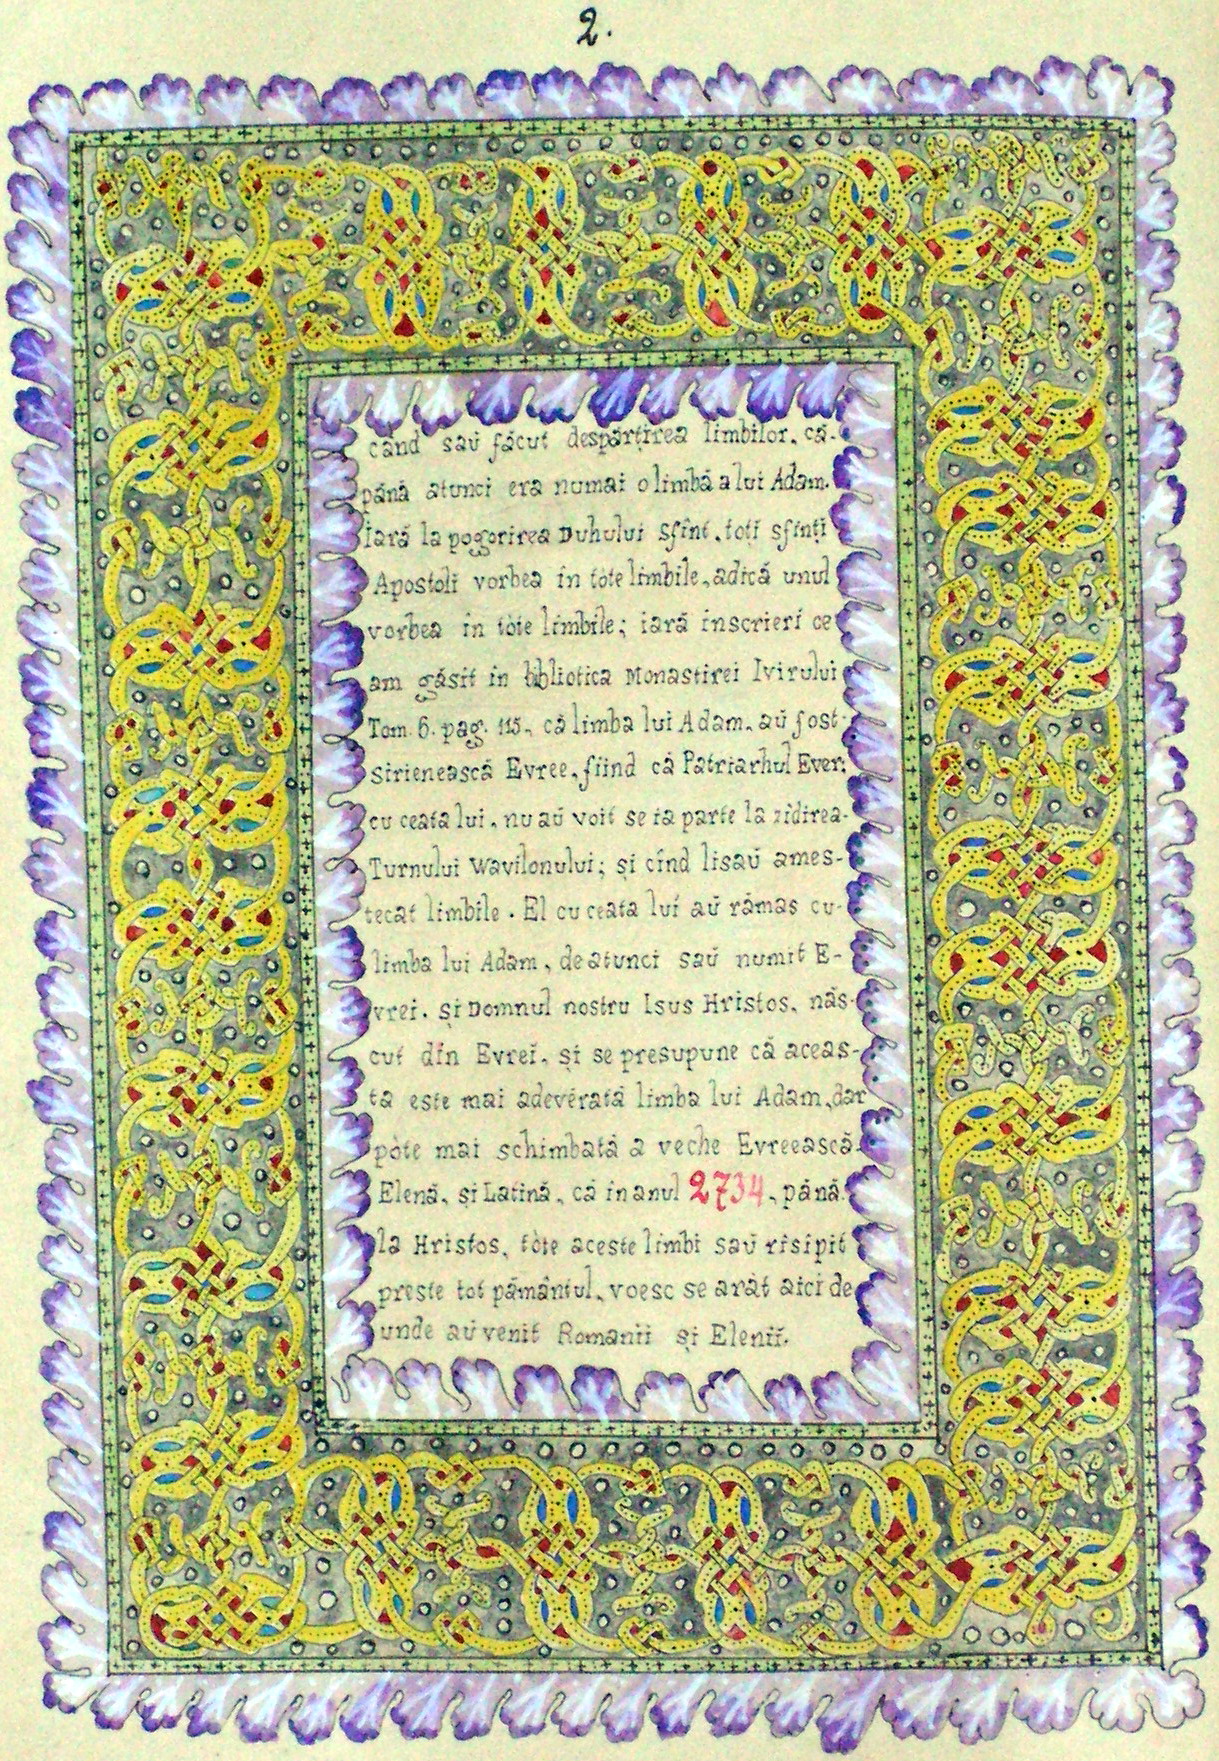 2.
când saŭ făcut despărțirea limbilor, că-
pănă atunci era numai o limbă a lui Adam.
Iară la pogorirea Duhului Sfint, toți sfinți
Apostoli vorbea in tòte limbile, adică unul
vorbea in tòte limbile; iară inscrieri ce
am găsit in bibliotica Monastirei Ivirului
Tom. 6. pag. 115, că limba lui Adam, aŭ fost-
sirienească Evree, fiind că Patriarhul Ever,
cu ceata lui, nu aŭ voit se ia parte la zidirea-
Turnului Wavilonului; și cînd lisaŭ ames-
tecat limbile. El cu ceata lui aŭ rămas cu-
limba lui Adam, de atunci saŭ numit E-
vrei. și Domnul nostru Isus Hristos, năs-
cut din Evrei, și se presupune că aceas-
ta este mai adevĕrată limba lui Adam, dar
pòte mai schimbată a veche Evreească-
Elenă, și Latină, că in anul 2734, pănă
la Hristos, tòte aceste limbi saŭ risipit
preste tot pămăntul, voesc se arăt aici de
unde aŭ venit Romanii și Elenii.